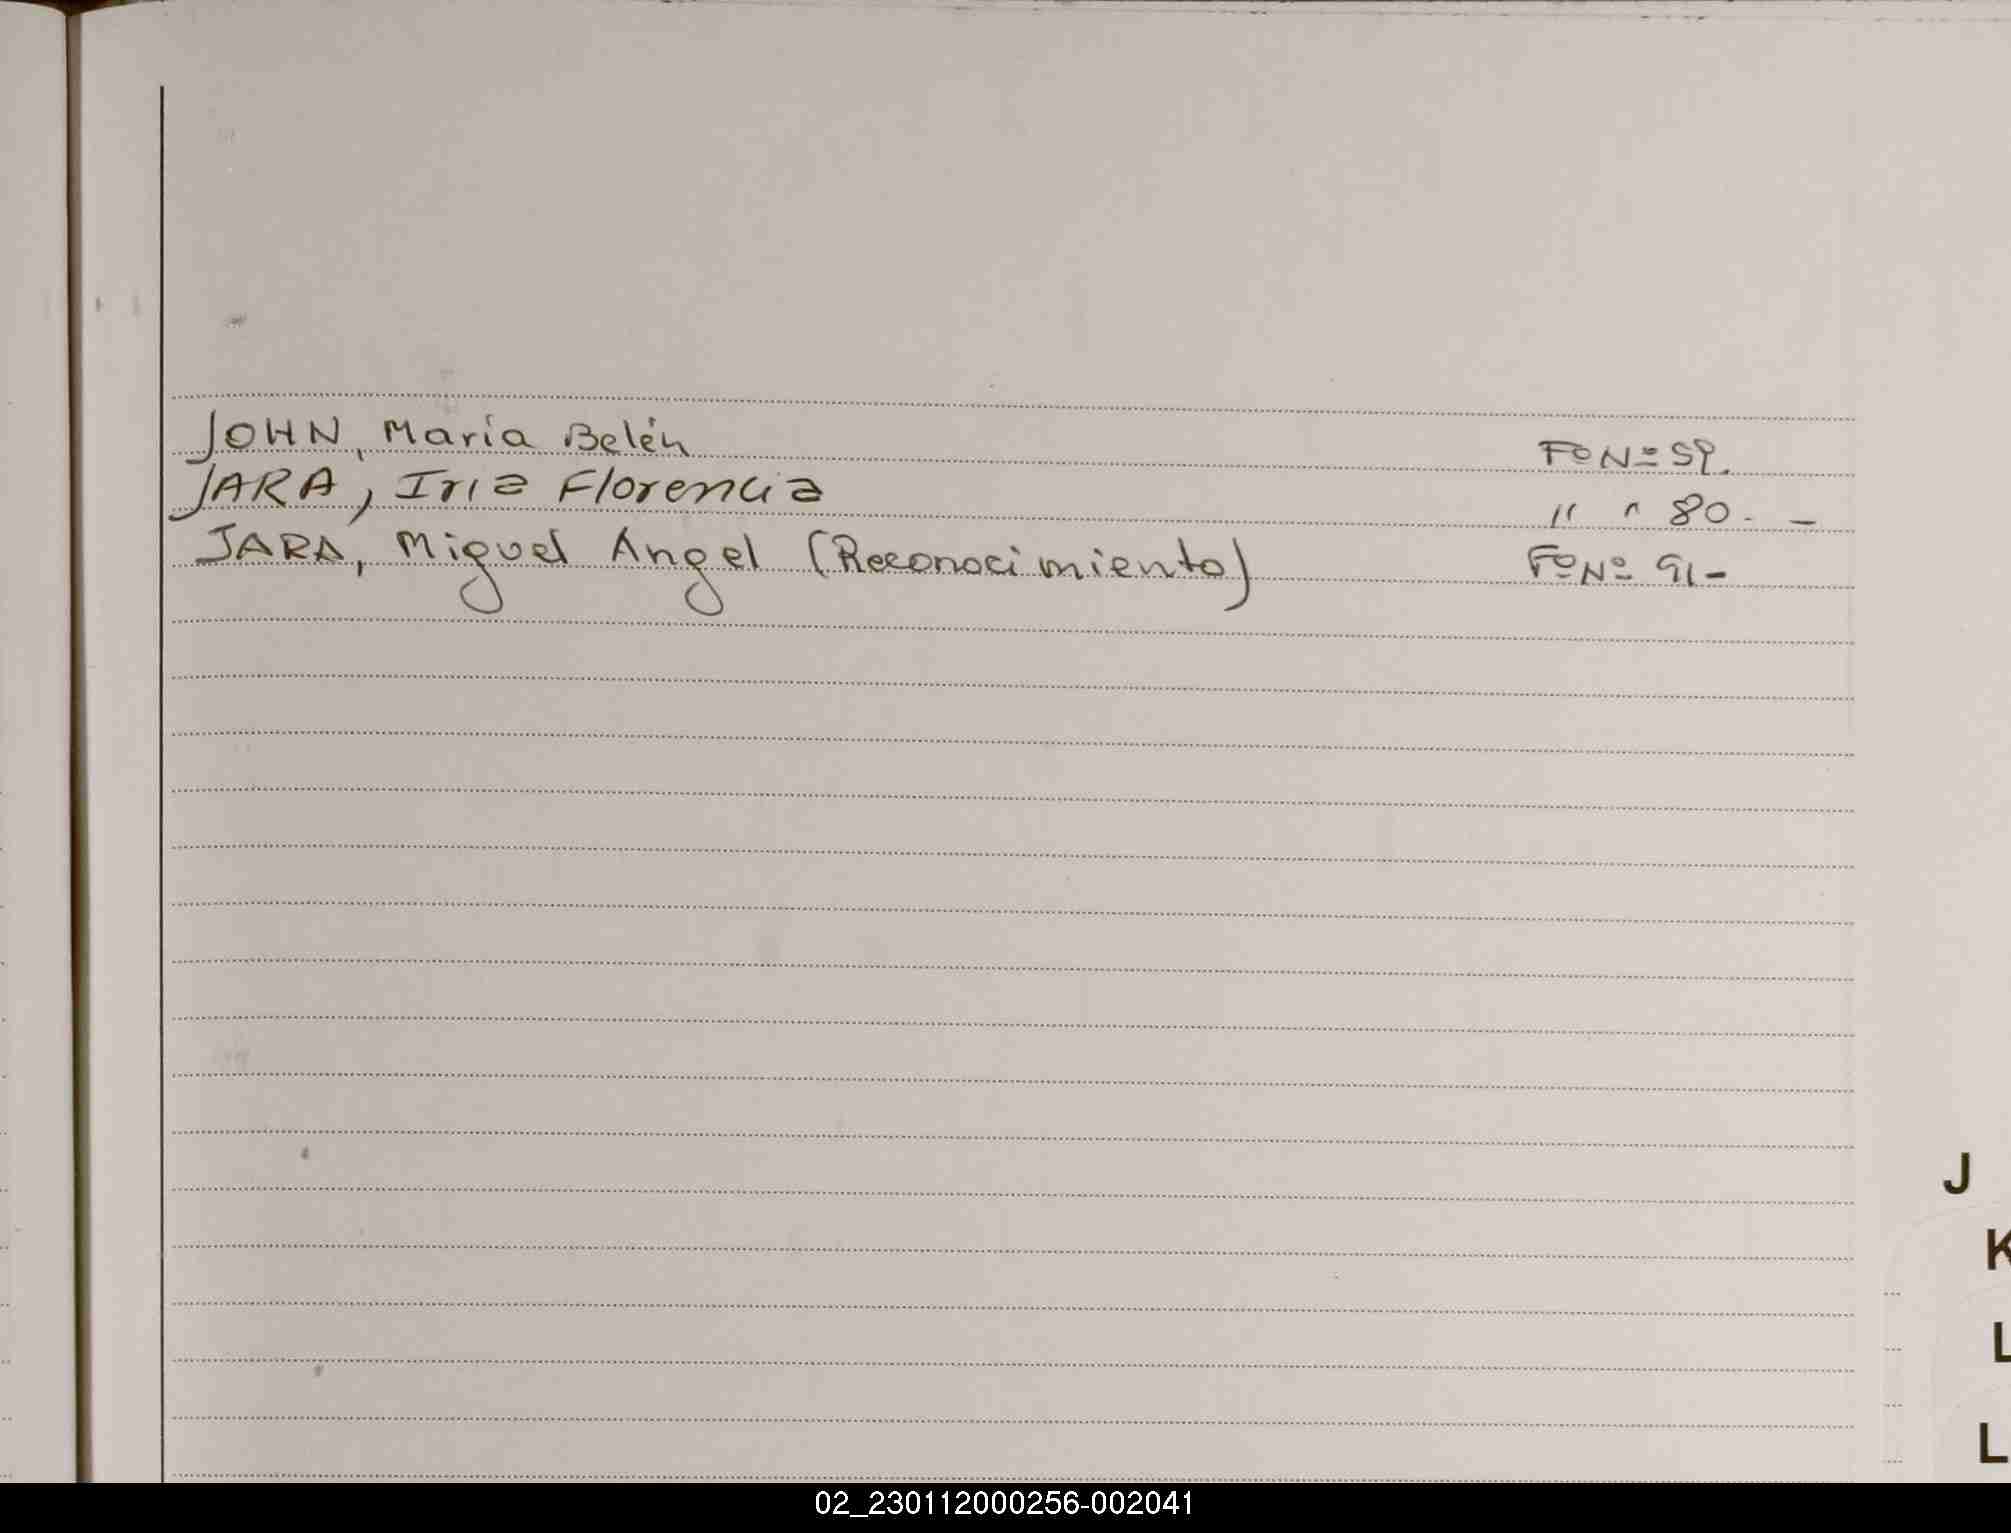 JOHN, María Belén Fº Nº 59.
JARA, Iria Florencia " " 80. -
JARA, Miguel Angel (Reconocimiento) Fº Nº 91-
J
K
L
L
02_230112000256-002041